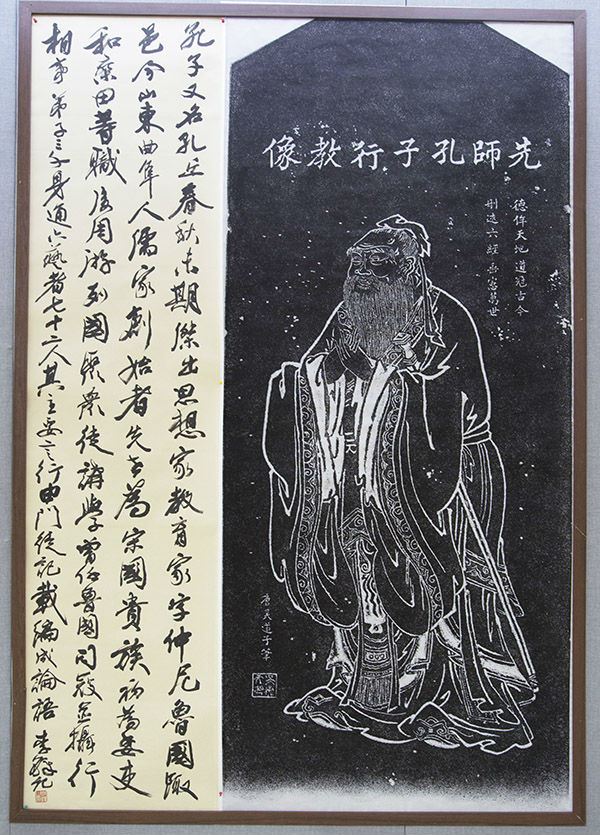 先師孔子行教像
德侔天地 道冠古今
刪述六經 垂憲萬世
唐吳道子筆
孔子又名孔丘春秋末期傑出思想家教育家字仲尼魯國陬
邑今山東曲阜人儒家創始者先世為宋國貴族初為委吏
和乘田等職後周游列國聚眾徒講學曾任魯國司寇並攝行
相事弟子三千身通六藝者七十二人其主要言行由門徒記載編成論語